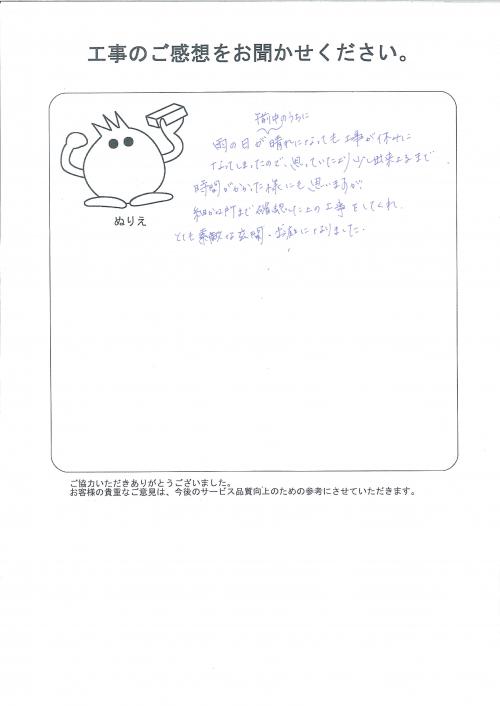 工事のご感想をお聞かせください。
午前中のうちに
雨の日が晴れになっても工事が休みに
なってしまったので、思っていたより少し出来上るまで
時間がかかった様にも思いますが
細かい所まで確認した上の工事をしてくれ、
とても素敵な玄関、お庭になりました。
ぬりえ
ご協力いただきありがとうございました。
お客様の貴重なご意見は、今後のサービス品質向上のための参考にさせていただきます。